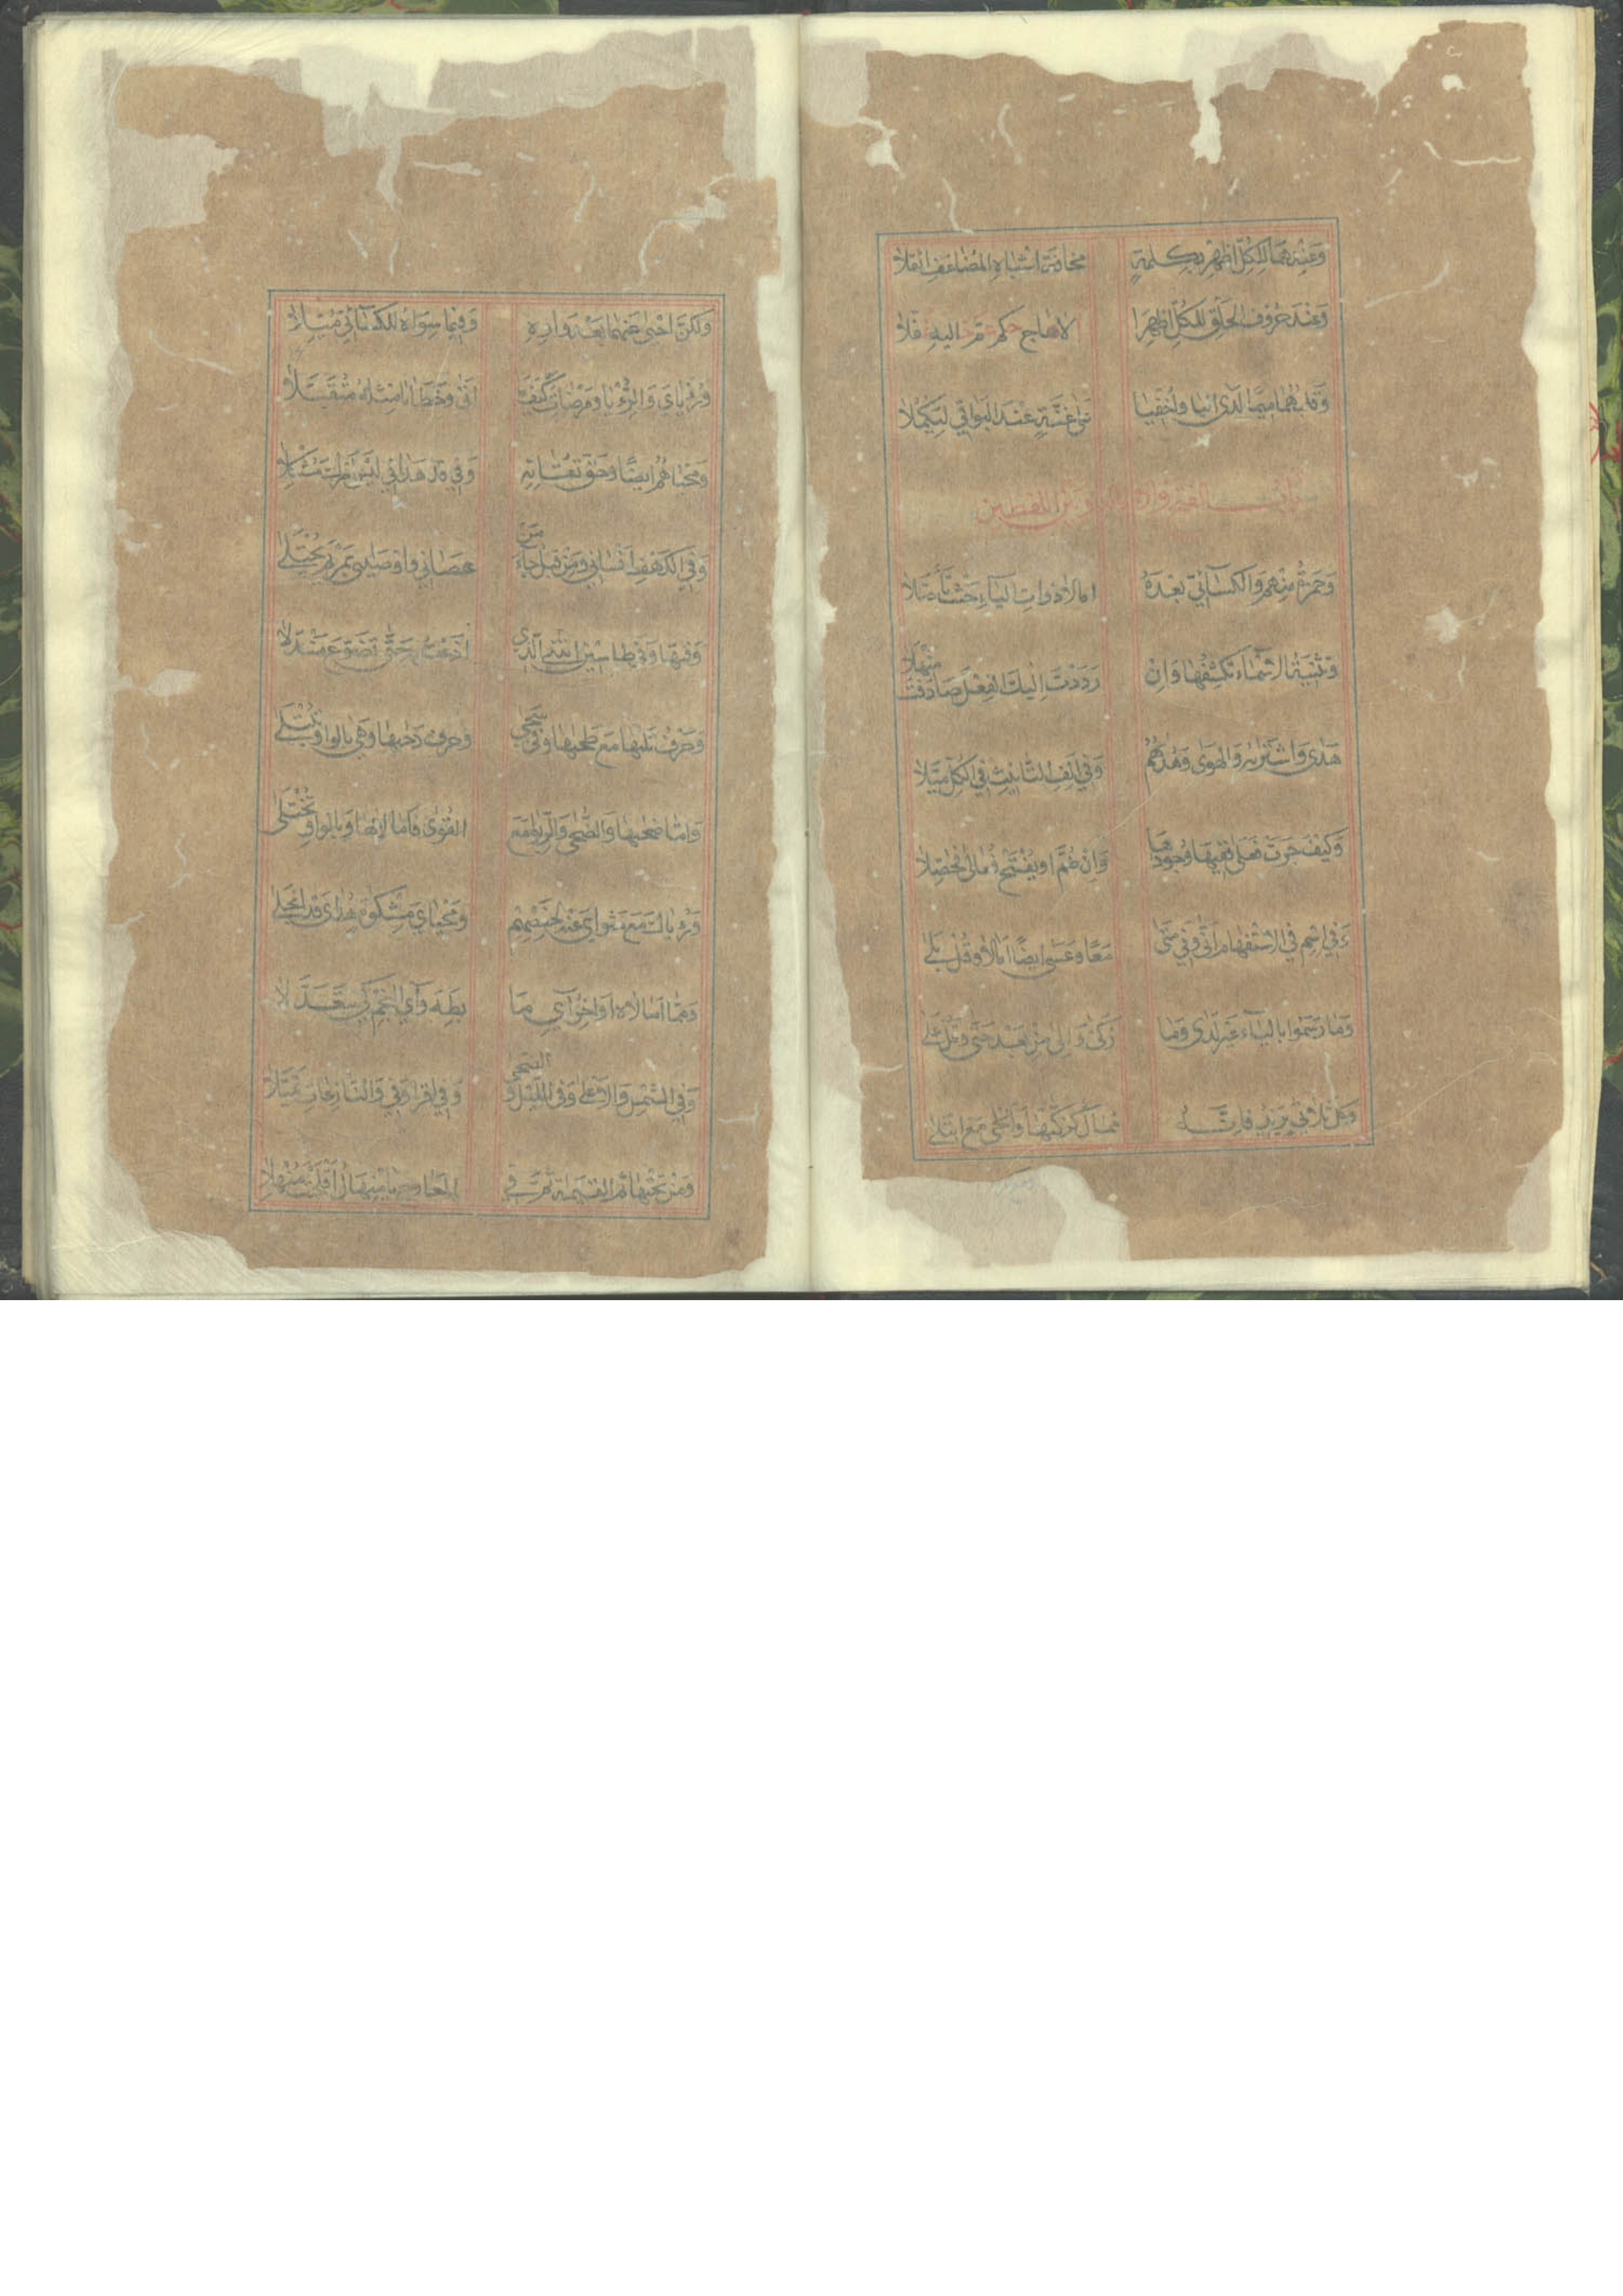 وَعِنْدَهُمَا لِلكُلِّ اَظْهِرْ بِكِلمَةٍ مَخَافَةَ اشْبَاهِ المُضَاعَفِ اَثْقَلَا
وَعِنْدَ حُرُوفِ الحَلْقِ لِلكُلِّ اُظْهِرَا الا هاج حكم عم خاليه غفلا
وَقَلبُهُمَا مِيمًا لَدَى البَا وَاُخْفِيَا عَلى غُنَّةٍ عِنْدَ البَوَاقِي لِيَكْمُلَا
بَابُ الفتح والامالة وبين اللفظين
وَحَمْزَةُ مِنْهُمْ وَالكِسَآئِيُّ بَعْدَهُ امَالَا ذَوَاتِ اليَآءِ حَيْثُ تَأَصَّلَا
وَتَثْنِيَةُ الاَسْمَآءِ تَكْشِفُهَا وَاِنْ رَدَدْتَ اِلَيْكَ الفِعْلَ صَادَفْتَ مَنْهَلَا
هَدَى وَاشْتَرَيهُ وَالهَوَى وَهُدَيهُمُ وَفِي اَلِفِ التَّانِيثِ فِي الكُلِّ مَيَّلَا
وَكَيْفَ جَرَتْ فَعْلَى فَفِيهَا وُجُودُهَا وَاِنْ ضُمَّ اَوْ يُفْتَحْ فُعَالَى فَحَصِّلَا
وَفِي اسْمٍ فِي الاِسْتِفْهَامِ اَنَّى وَفِي مَتَى مَعًا وَعَسَى اَيْضًا اَمَالَا وَقُلْ بَلَى
وَمَا رَسَمُوا بِاليَآءِ غَيْرَ لَدَى وَمَا زَكَى وَاِلى مِنْ بَعْدُ حَتَّى وَقُلْ عَلَى
وَكُلُّ ثُلَاثِيٍّ يَزِيدُ فَاِنَّهُ مُمَالٌ كَزَكَّيهَا وَاَنْجَى مَعَ ابْتَلَى
وَلَكِنَّ اَحْيَى عَنْهُمَا بَعْدَ وَاوِهِ وَفِيمَا سِوَاهُ لِلكِسَائِيِّ مُيِّلَا
وَرُءْيَايَ وَالرُّءْيَا وَمَرْضَاتِ كَيْفَ مَا اَتَى وَخَطَايَا مِثْلُهُ مُتَقَبَّلَا
وَمَحْيَاهُمُ اَيْضًا وَحَقَّ تُقَاتِهِ وَفِي قَدْ هَدَانِي لَيْسَ اَمْرُكَ مُشْكِلَا
وَفِي الكَهْفِ اَنْسَانِي وَمِنْ قَبْلُ جَاءَ مَنْ عَصَانِي وَاَوْصَانِي بِمَرْيَمَ يُجْتَلَى
وَفِيهَا وَفِي طَاسِينَ اتَانِيَ الَّذِي اَذَعْتُ بِهِ حَتَّى تَضَوَّعَ مَنْدَلَا
وَحَرْفُ تَلَيهَا مَعَ طَحَيهَا وَفِي سَجَى وَحَرْفُ دَحَيهَا وَهْيَ بِالوَاوِ تُبْتَلَى
وَاَمَّا ضُحَيهَا وَالضُّحَى وَالرِّبَوا مَعَ القُوَى فَاَمَالَاهَا وَبِالوَاوِ تُخْتَلَى
وَرُءْيَاكَ مَعَ مَثْوَايَ عَنْهُ لِحَفْصِهِمْ وَمَحْيَايَ مِشْكَوةٍ هُدَايَ قَدِ انْجَلَى
وَمِمَّا اَمَالَاهُ اَوَاخِرُ اَيِ مَا بِطَهَ وَآيِ النَّجْمِ كَيْ تَتَعَدَّلَا
وَفِي الشَّمْسِ وَالاَعْلَى وَفِي اللَّيْلِ وَالضُّحَى وَفِي اقْرَا وَفِي وَالنَّازِعَاتِ تَمَيَّلَا
وَمِنْ تَحْتِهَا ثُمَّ القِيَمَةِ ثُمَّ فِي المَعَارِجِ يَا مِنْهَالُ اَفْلَحْتَ مُنْهِلَا